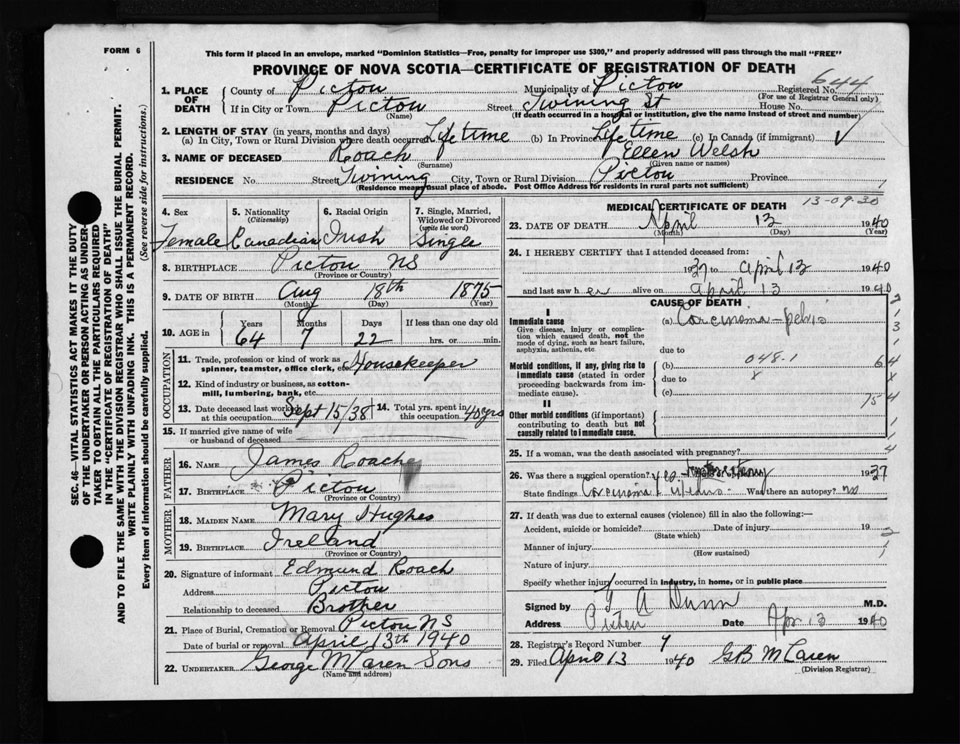 FORM 6
This form if placed in an envelope, marked "Dominion Statistics—Free, penalty for improper use $300," and properly addressed will pass through the mail "FREE"
PROVINCE OF NOVA SCOTIA—CERTIFICATE OF REGISTRATION OF DEATH
1. PLACE OF DEATH
County of Pictou Municipality of Pictou Registered No. 644
(For use of Registrar General only)
If in City or Town Pictou Street Twining St House No.
(Name) (If death occurred in a hospital or institution, give the name instead of street and number)
2. LENGTH OF STAY (in years, months and days)
(a) In City, Town or Rural Division where death occurred Life time (b) In Province Life time (c) In Canada (if immigrant) ✓
3. NAME OF DECEASED Roach Ellen Welsh
(Surname) (Given name or names)
RESIDENCE No. Street Twining City, Town or Rural Division Pictou Province
(Residence means usual place of abode. Post Office Address for residents in rural parts not sufficient)
4. Sex Female
5. Nationality (Citizenship) Canadian
6. Racial Origin Irish
7. Single, Married, Widowed or Divorced (write the word) Single
8. BIRTHPLACE Pictou NS
(Province or Country)
9. DATE OF BIRTH Aug 18th 1875
(Month) (Day) (Year)
10. AGE in Years Months Days If less than one day old
64 7 22 hrs. or min.
OCCUPATION
11. Trade, profession or kind of work as spinner, teamster, office clerk, etc. Housekeeper
12. Kind of industry or business, as cotton-mill, lumbering, bank, etc.
13. Date deceased last worked at this occupation Sept 15/38
14. Total yrs. spent in this occupation 40 yrs
15. If married give name of wife or husband of deceased
FATHER
16. NAME James Roache
17. BIRTHPLACE Pictou
(Province or Country)
MOTHER
18. MAIDEN NAME Mary Hughes
19. BIRTHPLACE Ireland
(Province or Country)
20. Signature of informant Edmund Roach
Address Pictou
Relationship to deceased Brother
21. Place of Burial, Cremation or Removal Pictou NS
Date of burial or removal April 13th 1940
22. UNDERTAKER George McLaren Sons
(Name and address)
MEDICAL CERTIFICATE OF DEATH
13-09-30
23. DATE OF DEATH April 13 1940
(Month) (Day) (Year)
24. I HEREBY CERTIFY that I attended deceased from:
1937 to April 13 1940
and last saw her alive on April 13 1940
CAUSE OF DEATH
I
Immediate cause (a) Carcinoma - pelvis
Give disease, injury or complication which caused death, not the mode of dying, such as heart failure, asphyxia, asthenia, etc.
due to
Morbid conditions, if any, giving rise to immediate cause (stated in order proceeding backwards from immediate cause).
(b) 048.1
due to
(c)
II
Other morbid conditions (if important) contributing to death but not causally related to immediate cause.
25. If a woman, was the death associated with pregnancy?
26. Was there a surgical operation? yes 1937
State findings Carcinoma of Uterus. Was there an autopsy? no
27. If death was due to external causes (violence) fill in also the following:—
Accident, suicide or homicide? Date of injury 19
(State which)
Manner of injury
(How sustained)
Nature of injury
Specify whether injury occurred in industry, in home, or in public place
Signed by G A Dunn M.D.
Address Pictou Date Apr 13 1940
28. Registrar's Record Number
29. Filed April 13 1940 GB McLaren
(Division Registrar)
SEC. 46—VITAL STATISTICS ACT MAKES IT THE DUTY OF THE UNDERTAKER OR PERSON ACTING AS UNDERTAKER TO OBTAIN ALL THE PARTICULARS REQUIRED IN THE "CERTIFICATE OF REGISTRATION OF DEATH" AND TO FILE THE SAME WITH THE DIVISION REGISTRAR WHO SHALL ISSUE THE BURIAL PERMIT.
WRITE PLAINLY WITH UNFADING INK. THIS IS A PERMANENT RECORD.
Every item of information should be carefully supplied. (See reverse side for instructions.)